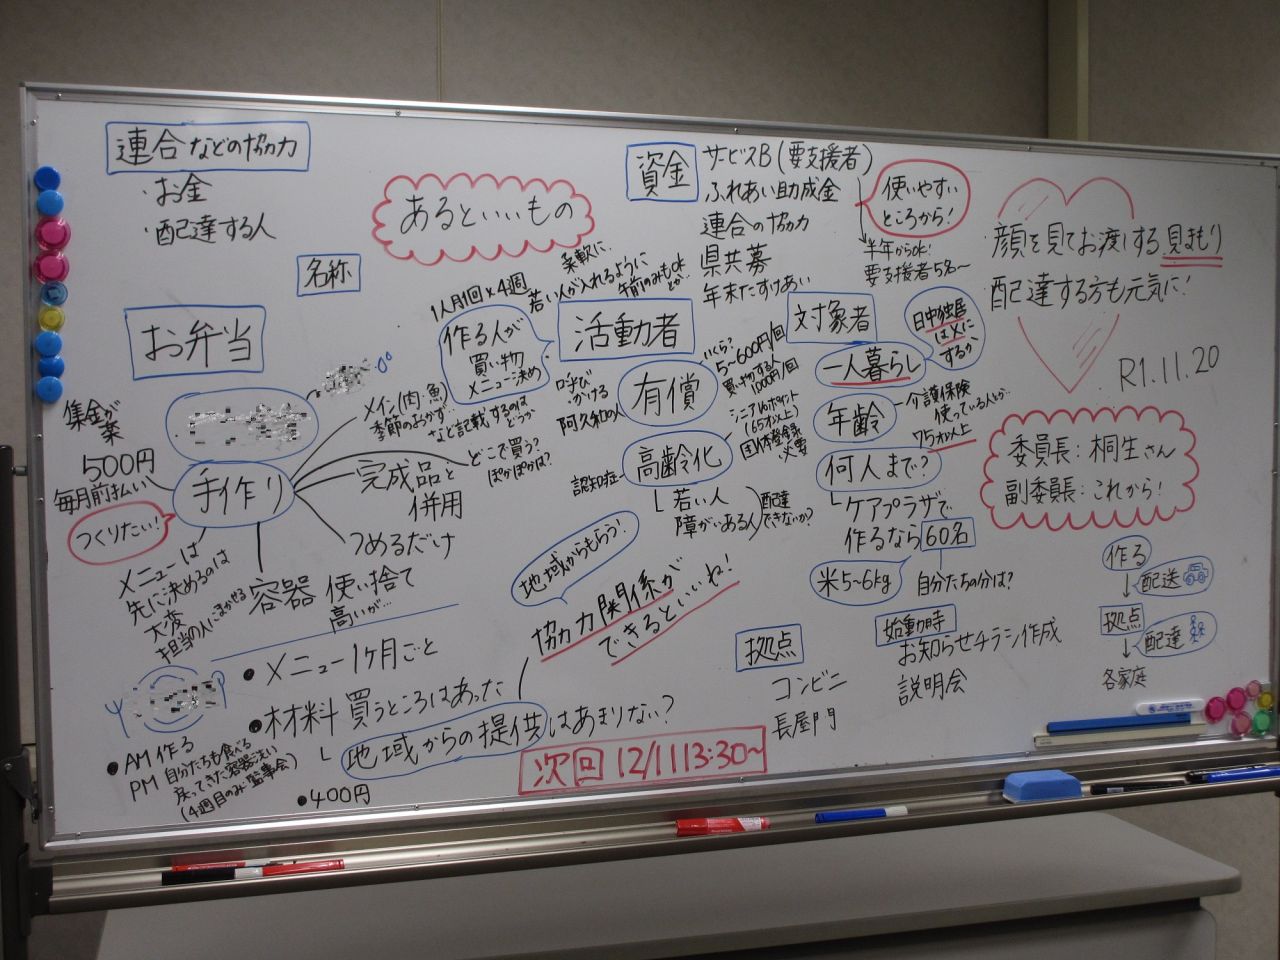 連合などの協力
・お金
・配達する人
あるといいもの
名称
お弁当
集金が
楽
500円
毎月前払い
つくりたい!
手作り
メイン(肉・魚)
季節のおかず…
など記載するのは
どうか
完成品と
併用
どこで買う?
ぽかぽかは?
つめるだけ
容器 使い捨て
高いが…
メニューは
先に決めるのは
大変
担当の人にまかせる
●メニュー1ヶ月ごと
●材料 買うところはあった
└地域からの提供はあまりない?
●AM 作る
PM 自分たちも食べる
戻ってきた容器洗い
(4週目のみ監事会)
●400円
1人月1回×4週
作る人が
買い物
メニュー決め
活動者
柔軟に、
若い人が入れるように
午前のみもok
とか
呼び
かける
阿久和の人
有償
いくら?
5〜600円/回
買い物する人
1000円/回
シニアボポイント
(65才以上)
団体登録
必要
認知症
高齢化
└若い人
障がいある人
配達
できないか?
地域からもらう!
協力関係が
できるといいね!
資金
サービスB(要支援者)
ふれあい助成金
連合の協力
県共募
年末たすけあい
使いやすい
ところから!
半年からok!
要支援者5名〜
対象者
一人暮らし
日中独居
はXに
するか
年齢
介護保険
使っている人とか
75才以上
何人まで?
└ケアプラザで
作るなら60名
米5〜6kg
自分たちの分は?
始動時
お知らせチラシ作成
説明会
拠点
コンビニ
長屋門
次回 12/11 13:30〜
顔を見てお渡しする見まもり
配達する方も元気に!
R1.11.20
委員長:桐生さん
副委員長:これから!
作る
↓配送
拠点
↓配達
各家庭